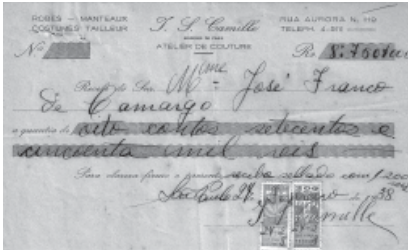 ROBES — MANTEAUX
COSTUMES TAILLEUR
J. S. Camille
ATELIER DE COUTURE
RUA AURORA N. 119
TELEPH.
Nº
Rs 8:750$000
Recebi do Snr. Mme José Franco
de Camargo
a quantia de oito contos setecentos e
cincoenta mil reis
Para clareza firmo o presente
São Paulo de 38